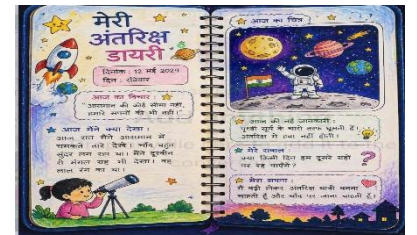 मेरी
अंतरिक्ष
डायरी
दिनांक : 12 मई 2029
दिन : रविवार
आज का विचार :
"आसमान की कोई सीमा नहीं,
हमारे सपनों की भी नहीं।"
आज मैंने क्या देखा :
आज रात मैंने आसमान में
चमकते तारे देखे। चाँद बहुत
सुंदर लग रहा था। मैंने दूरबीन
से मंगल ग्रह भी देखा। वह
लाल रंग का था।
आज का चित्र
आज की नई जानकारी :
पृथ्वी सूर्य के चारों तरफ घूमती है।
अंतरिक्ष में हवा नहीं होती।
मेरे सवाल
क्या किसी दिन हम दूसरे ग्रहों
पर रह पाएँगे ?
मेरा सपना :
मैं बड़ी होकर अंतरिक्ष यात्री बनना
चाहती हूँ और चाँद पर जाना चाहती हूँ।